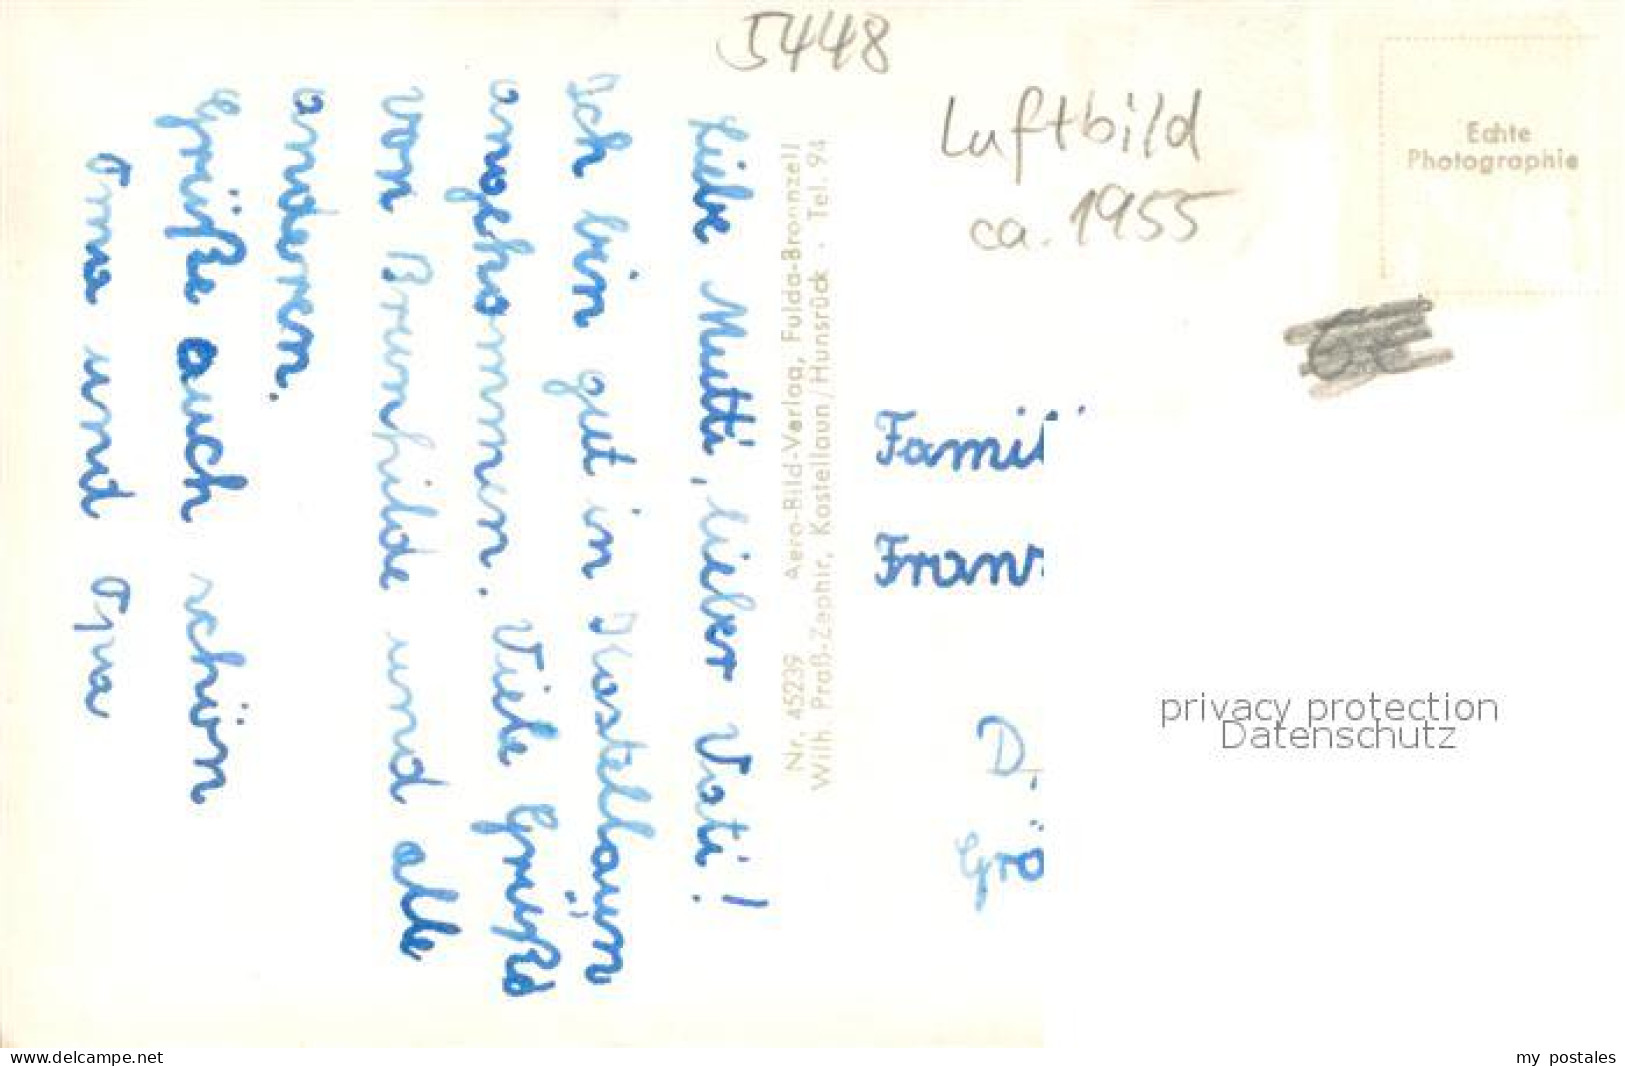 5448
Luftbild
ca. 1955
Echte
Photographie
Liebe Mutti, lieber Vati!
Ich bin gut in Kastellaun
angekommen. Viele Grüße
von Brunhilde und alle
anderen.
Grüße auch schön
Oma und Opa
Nr. 45239 Aero-Bild-Verlag, Fulda-Bronnzell
Wilh. Praß-Zephir, Kastellaun/Hunsrück · Tel. 94
Famil
Fran
D
Grö
privacy protection
Datenschutz
www.delcampe.net
my postales